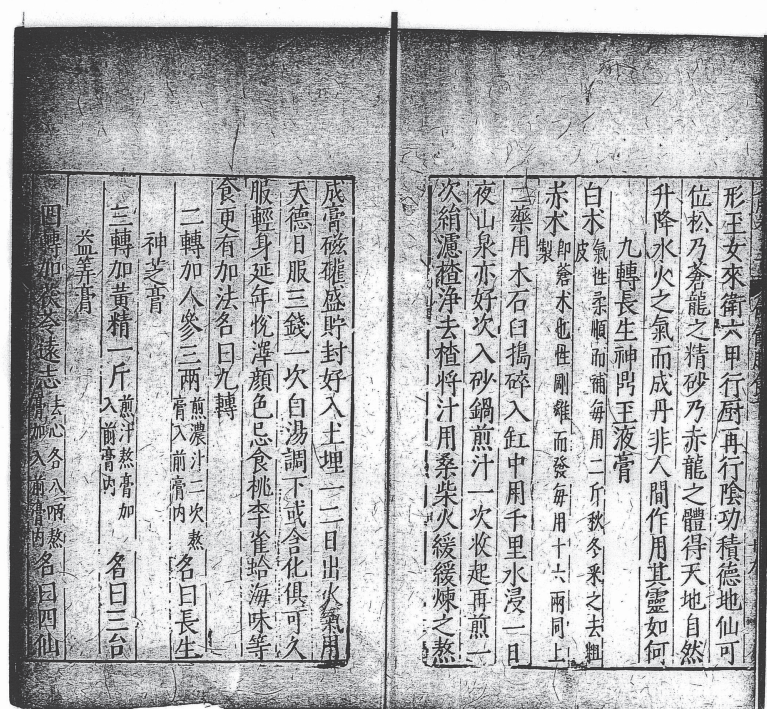 形玉女來衛六甲行廚再行陰功積德地仙可
位松乃蒼龍之精砂乃赤龍之體得天地自然
升降水火之氣而成丹非人間作用其靈如何
九轉長生神鼎玉液膏
白朮氣性柔順而補每用二斤秋冬采之去粗皮
赤朮即蒼朮也性剛雄而發每用十六兩同上製
二藥用木石臼搗碎入缸中用千里水浸一日
夜山泉亦好次入砂鍋煎汁一次收起再煎一
次絹濾楂淨去楂將汁用桑柴火緩緩煉之熬
成膏磁罐盛貯封好入土埋一二日出火氣用
天德日服三錢一次白湯調下或含化俱可久
服輕身延年悅澤顏色忌食桃李雀蛤海味等
食更有加法名曰九轉
二轉加人參三兩煎濃汁二次熬膏入前膏內名曰長生
神芝膏
三轉加黃精一斤煎汁熬膏加入前膏內名曰三台
益筭膏
四轉加茯苓遠志去心各八兩熬膏加入前膏內名曰四仙